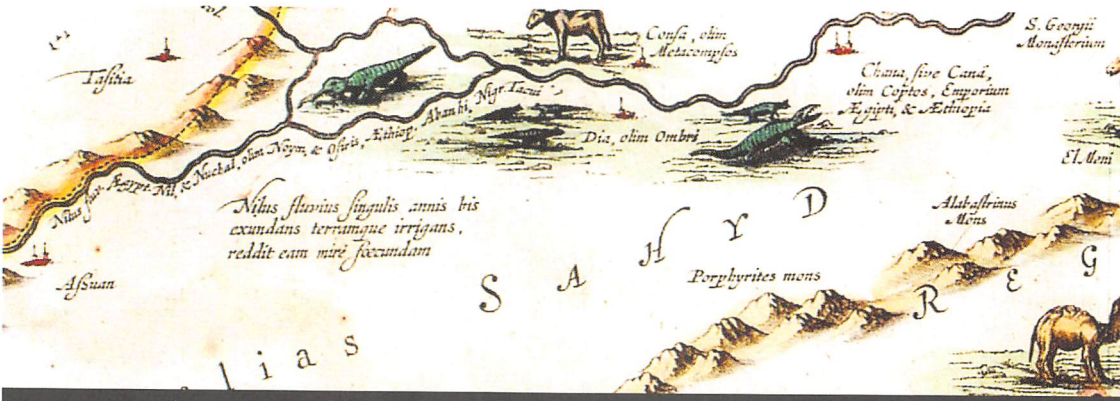 Confa, olim
Metacompſos
S. Georgii
Monaſterium
Taſitia
Chana, ſive Canâ,
olim Coptos, Emporium
Ægipti, & Æthiopia
Nilus fluv. Ægypt. Nil, & Nuchal, olim Noym, & Oſiris, Æthiop. Abanhi, Nigr. Tacui
Dia, olim Ombri
El Meni
Nilus fluvius ſingulis annis bis
exundans terramque irrigans,
reddit eam mirè fœcundam
Alabaſtrinus
Mons
SAHYD
Aſſuan
Porphyrites mons
REG
lias